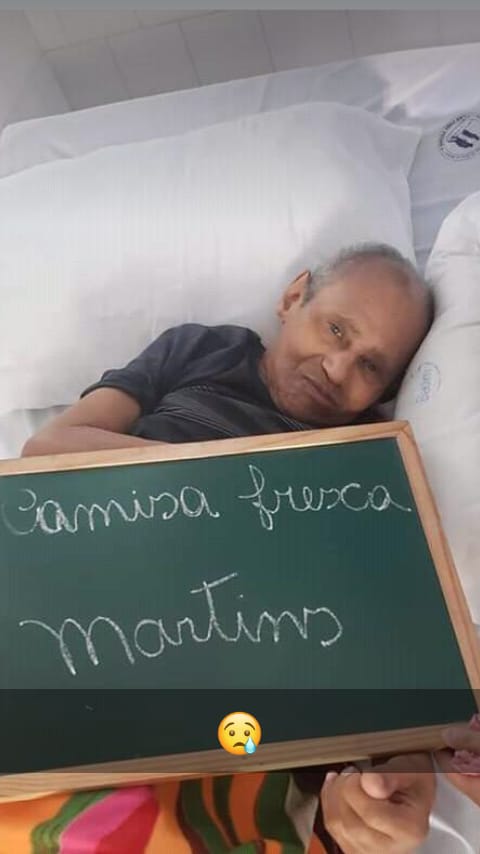 Camisa fresca
Martins
😢